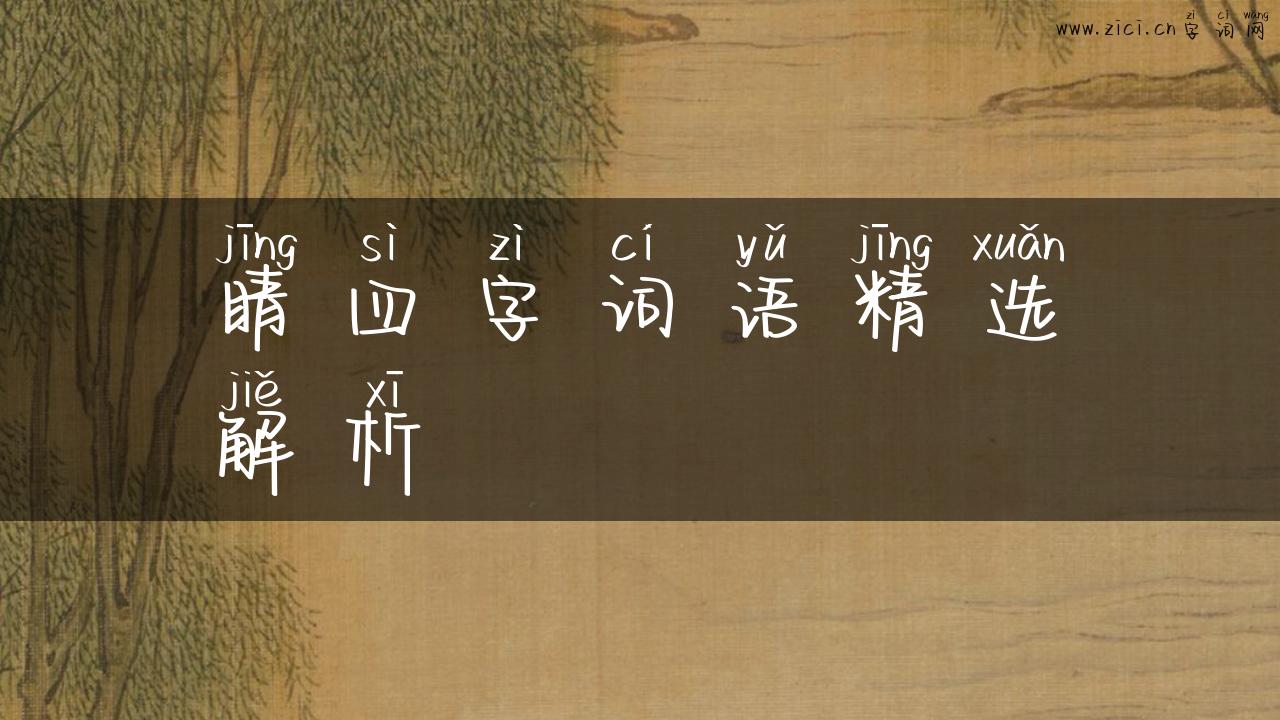 zì cí wǎng
www.zici.cn字词网
jīng sì zì cí yǔ jīng xuǎn
睛四字词语精选
jiě xī
解析